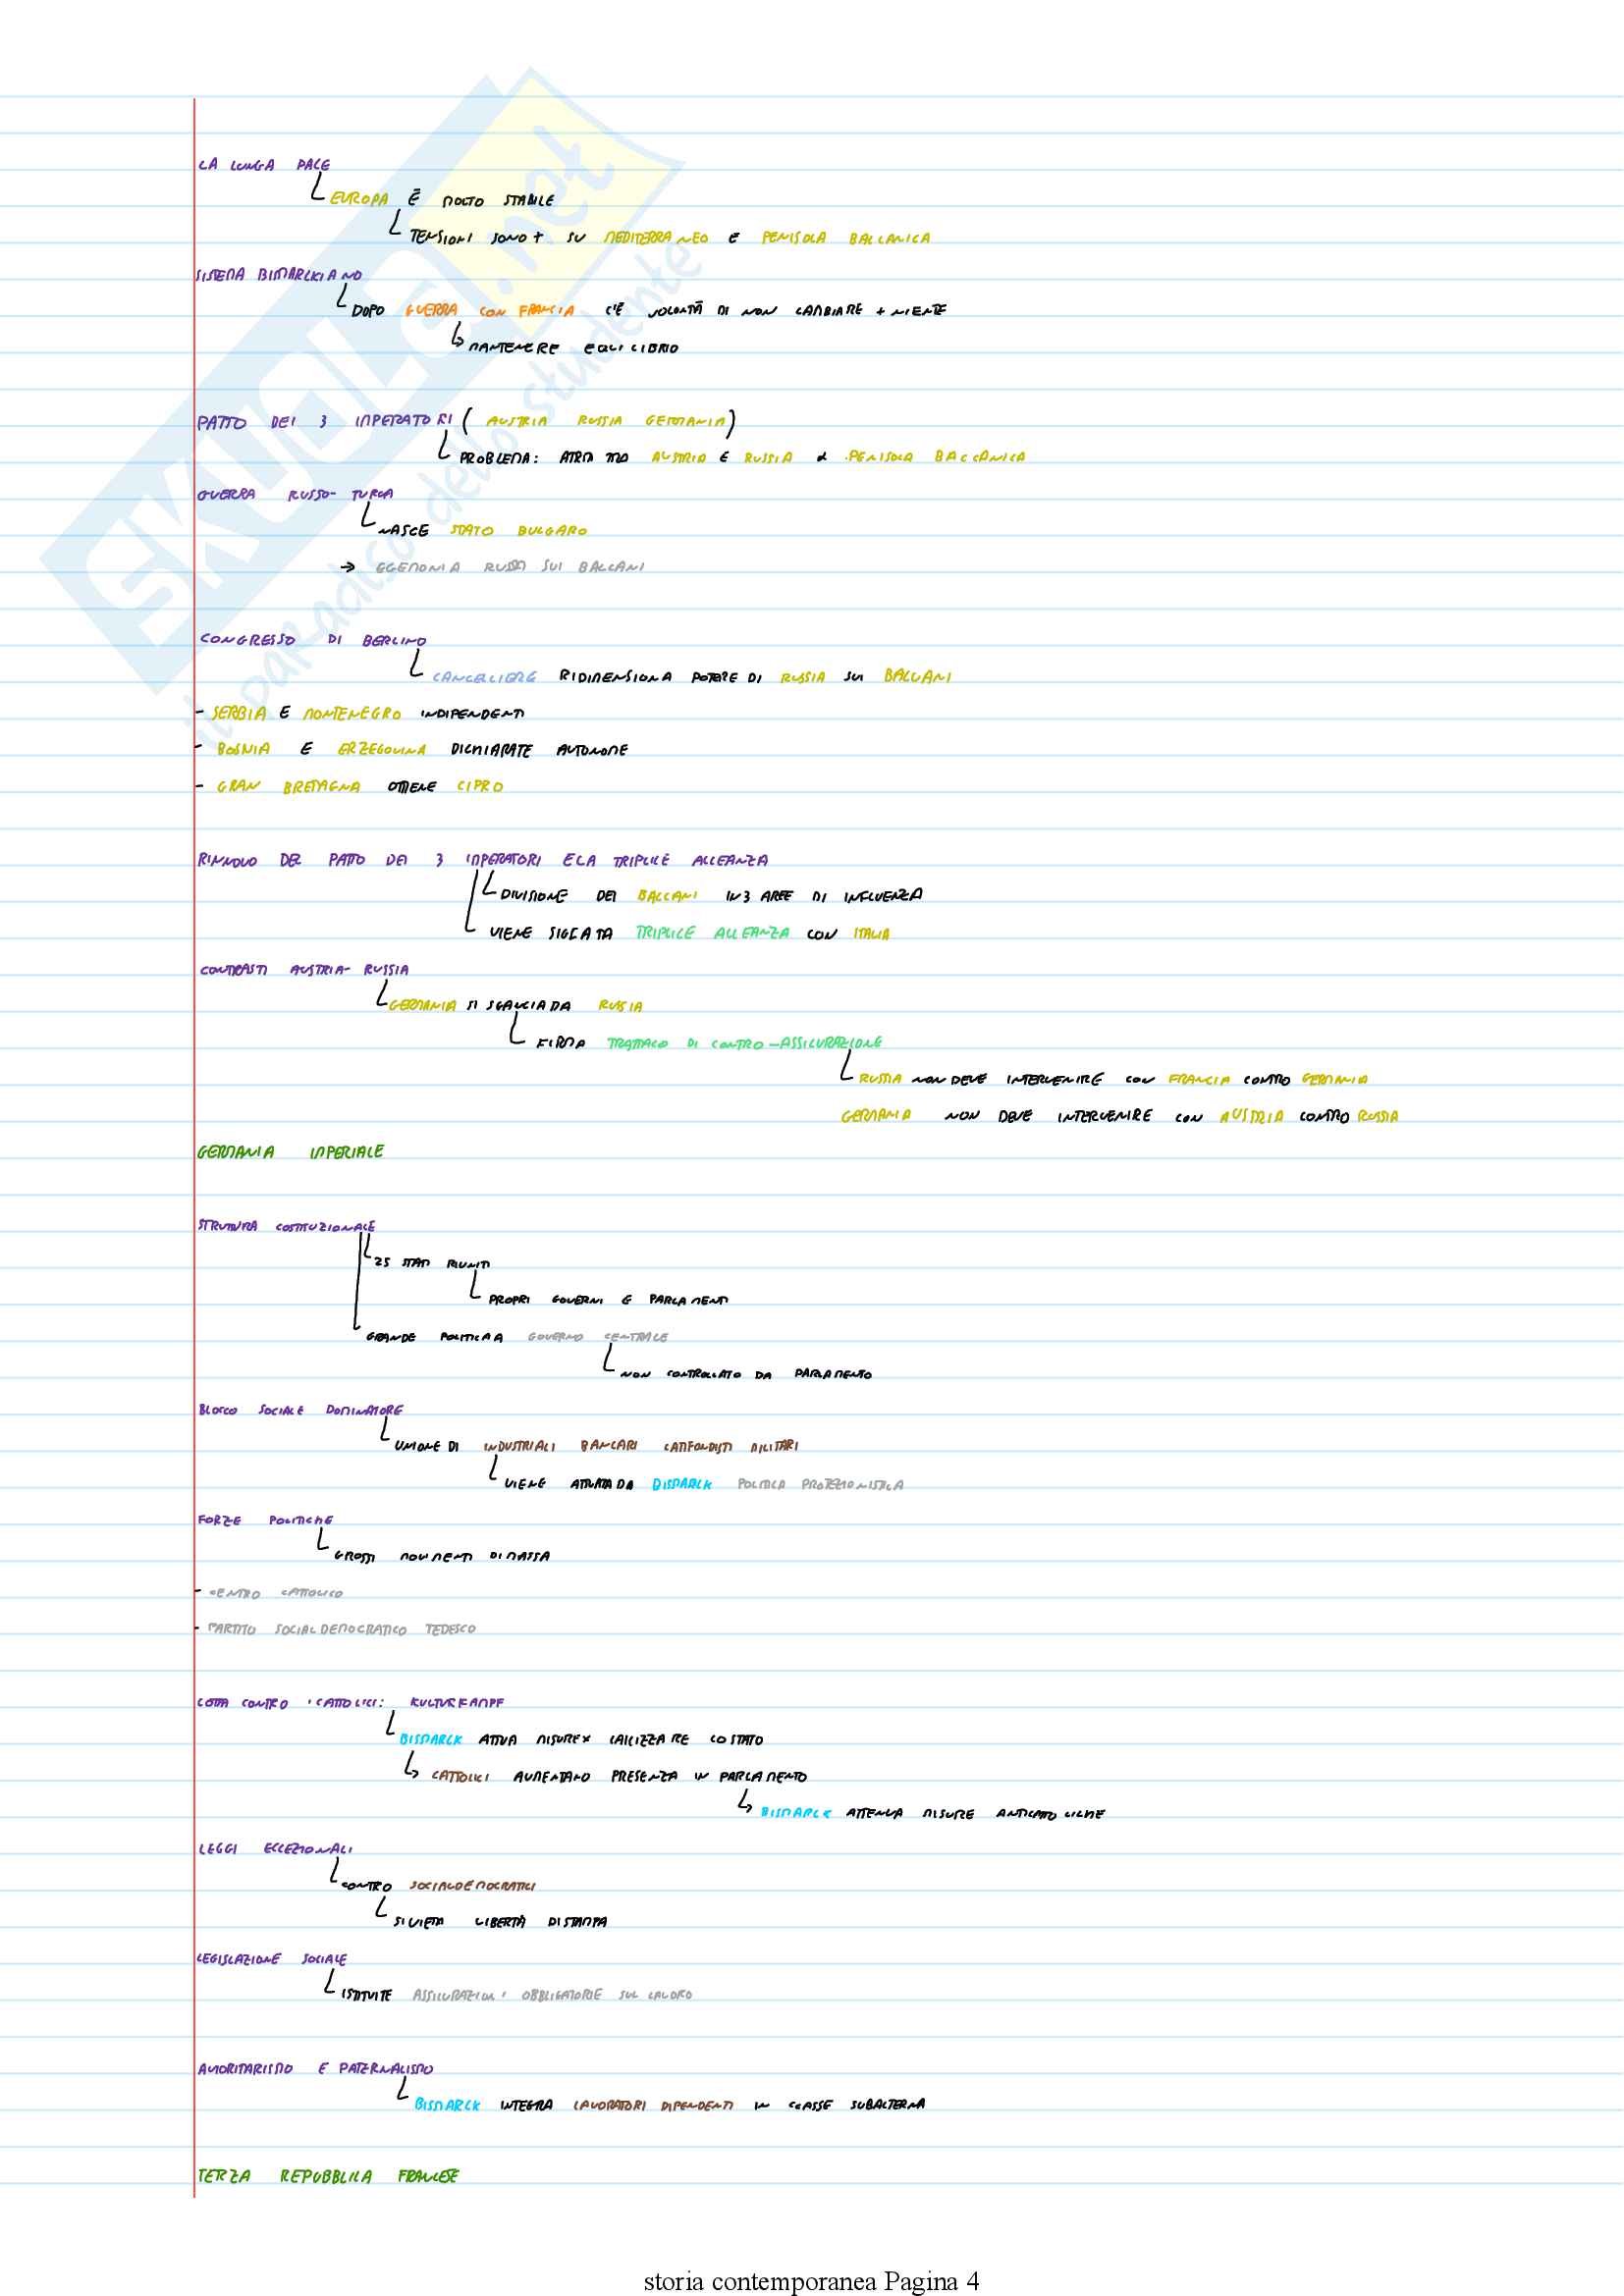 LA LUNGA PACE
EUROPA È MOLTO STABILE
TENSIONI SONO + SU MEDITERRANEO E PENISOLA BALCANICA
SISTEMA BIMARCKIANO
DOPO GUERRA CON FRANCIA C'È VOLONTÀ DI NON CAMBIARE + NIENTE
MANTENERE EQUILIBRIO
PATTO DEI 3 IMPERATORI (AUSTRIA RUSSIA GERMANIA)
PROBLEMA: ATRITI TRA AUSTRIA E RUSSIA PENISOLA BALCANICA
GUERRA RUSSO-TURCA
NASCE STATO BULGARO
→ EGEMONIA RUSSA SUI BALCANI
CONGRESSO DI BERLINO
CANCELLIERE RIDIMENSIONA POTERE DI RUSSIA SUI BALCANI
- SERBIA E MONTENEGRO INDIPENDENTI
- BOSNIA E ERZEGOVINA DICHIARATE AUTONOME
- GRAN BRETAGNA OTTIENE CIPRO
RINNOVO DEL PATTO DEI 3 IMPERATORI E LA TRIPLICE ALLEANZA
DIVISIONE DEI BALCANI IN 3 AREE DI INFLUENZA
VIENE SIGLATA TRIPLICE ALLEANZA CON ITALIA
CONTRASTI AUSTRIA-RUSSIA
GERMANIA SI SGANCIA DA RUSSIA
FIRMA TRATTATO DI CONTRO-ASSICURAZIONE
RUSSIA NON DEVE INTERVENIRE CON FRANCIA CONTRO GERMANIA
GERMANIA NON DEVE INTERVENIRE CON AUSTRIA CONTRO RUSSIA
GERMANIA IMPERIALE
STRUTTURA COSTITUZIONALE
25 STATI RIUNITI
PROPRI GOVERNI E PARLAMENTI
GRANDE POLITICA A GOVERNO CENTRALE
NON CONTROLLATO DA PARLAMENTO
BLOCCO SOCIALE DOMINATORE
UNIONE DI INDUSTRIALI BANCARI LATIFONDISTI MILITARI
VIENE ATTUATA DA BISMARCK POLITICA PROTEZIONISTICA
FORZE POLITICHE
GROSSI MOVIMENTI DI MASSA
- CENTRO CATTOLICO
- PARTITO SOCIALDEMOCRATICO TEDESCO
LOTTA CONTRO I CATTOLICI: KULTURKAMPF
BISMARCK ATTUA MISURE X LAICIZZARE LO STATO
CATTOLICI AUMENTANO PRESENZA IN PARLAMENTO
BISMARCK ATTENUA MISURE ANTICATTOLICHE
LEGGI ECCEZIONALI
CONTRO SOCIALDEMOCRATICI
SI VIETA LIBERTÀ DI STAMPA
LEGISLAZIONE SOCIALE
ISTITUITE ASSICURAZIONI OBBLIGATORIE SUL LAVORO
AUTORITARISMO E PATERNALISMO
BISMARCK INTEGRA LAVORATORI DIPENDENTI IN CLASSE SUBALTERNA
TERZA REPUBBLICA FRANCESE
SKUOLA.net
il paradiso dello studente
storia contemporanea Pagina 4